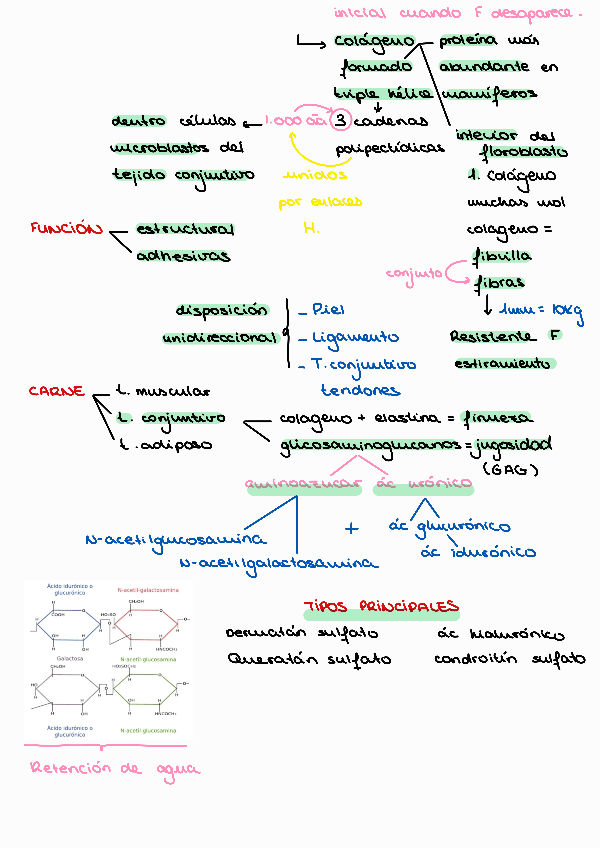 inicial cuando F desaparece.
Colágeno proteína más
formado abundante en
triple hélice mamíferos
dentro células 1.000 aa 3 cadenas
microblastos del polipectídicas
tejido conjuntivo
unidos
por enlaces
H.
interior del
floroblasto
t. colágeno
muchas mol
colageno =
fibrilla
conjunto
fibras
1mm = 10kg
Resistente F
estiramiento
FUNCIÓN estructural
adhesivas
disposición
unidireccional
- Piel
- Ligamento
- T. conjuntivo
tendones
CARNE t. muscular
t. conjuntivo colageno + elastina = firmeza
t. adiposo glicosaminoglucanos = jugosidad
(GAG)
aminoazucar ác urónico
N-acetilglucosamina + ác glucurónico
N-acetilgalactosamina ác idurónico
Ácido idurónico o
glucurónico
N-acetil-galactosamina
Galactosa N-acetil-glucosamina
Ácido idurónico o
glucurónico
N-acetil-glucosamina
Retención de agua
TIPOS PRINCIPALES
Dermatán sulfato ác hialurónico
Queratán sulfato condroitín sulfato